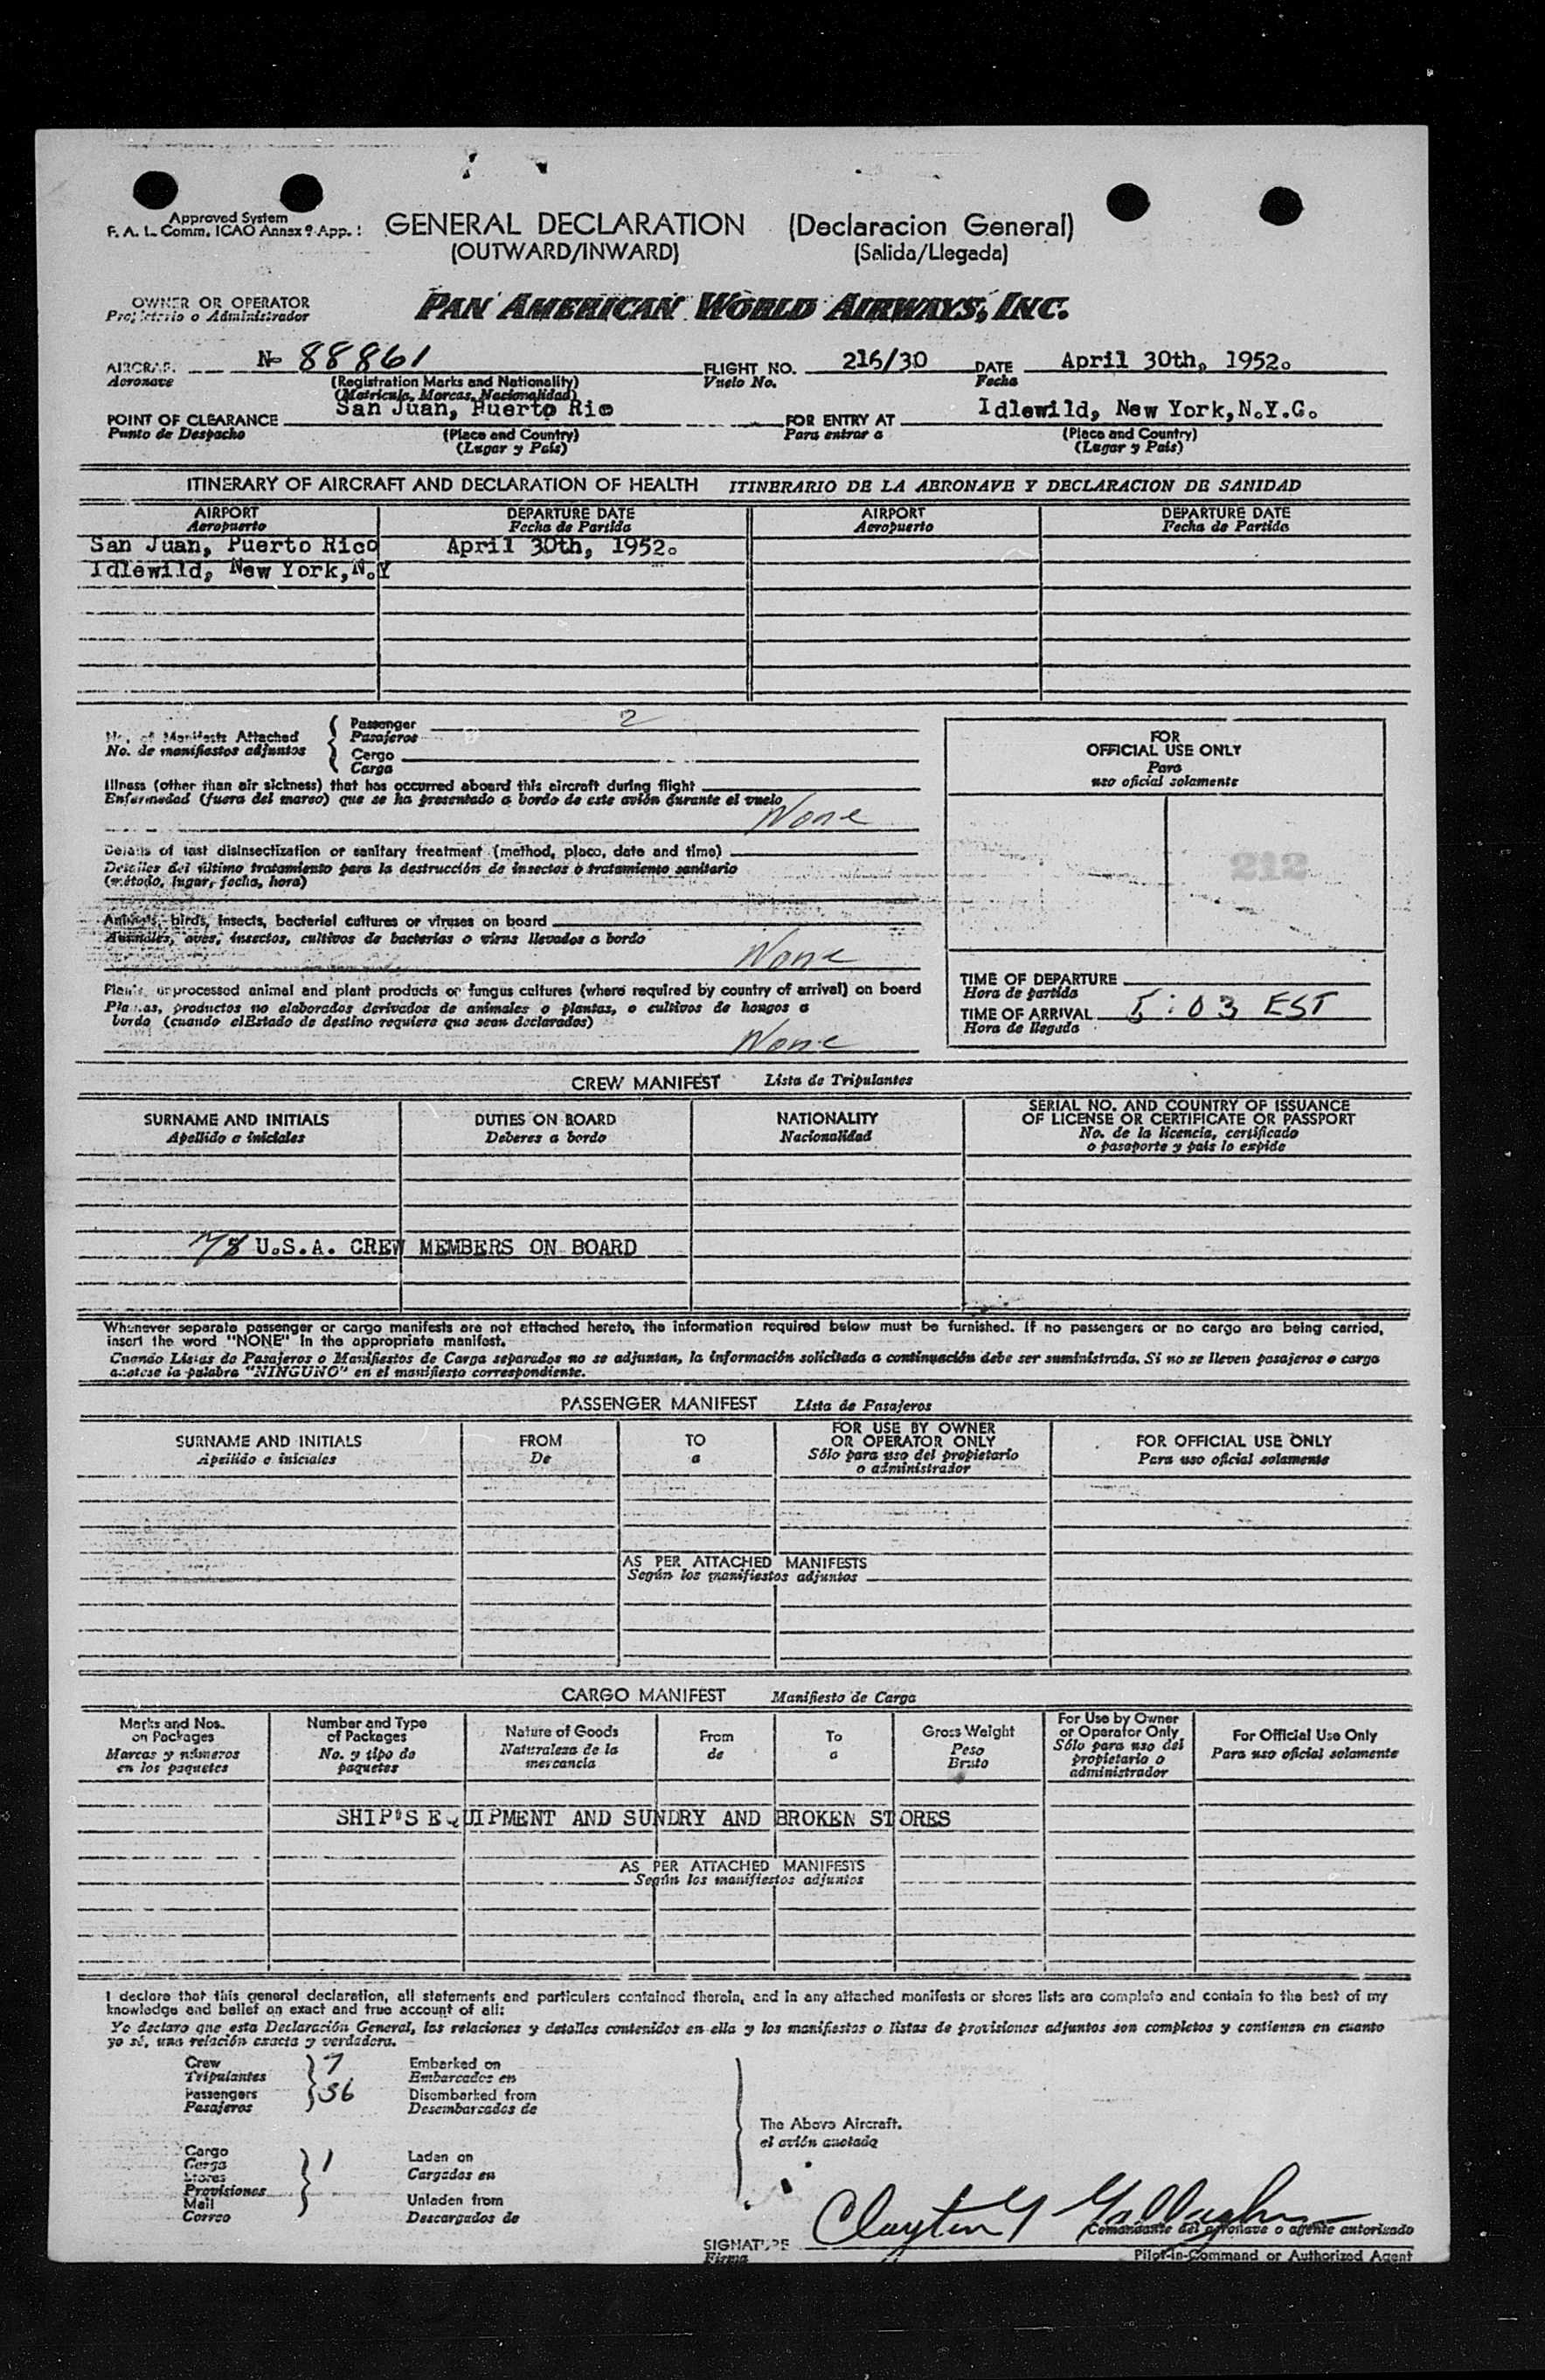 Approved System
F. A. L. Comm. ICAO Annex 9 App. 1
GENERAL DECLARATION (Declaracion General)
(OUTWARD/INWARD) (Salida/Llegada)
OWNER OR OPERATOR
Propietario o Administrador
PAN AMERICAN WORLD AIRWAYS, INC.
AIRCRAFT N- 88861 FLIGHT NO. 216/30 DATE April 30th, 1952.
Aeronave (Registration Marks and Nationality) Vuelo No. Fecha
(Matricula, Marcas, Nacionalidad)
POINT OF CLEARANCE San Juan, Puerto Rico FOR ENTRY AT Idlewild, New York, N.Y.C.
Punto de Despacho (Place and Country) Para entrar a (Place and Country)
(Lugar y País) (Lugar y País)
ITINERARY OF AIRCRAFT AND DECLARATION OF HEALTH ITINERARIO DE LA AERONAVE Y DECLARACION DE SANIDAD
AIRPORT DEPARTURE DATE AIRPORT DEPARTURE DATE
Aeropuerto Fecha de Partida Aeropuerto Fecha de Partida
San Juan, Puerto Rico April 30th, 1952.
Idlewild, New York, N.Y
No. of Manifests Attached
No. de manifiestos adjuntos
Passenger 2
Pasajeros
Cargo
Carga
FOR
OFFICIAL USE ONLY
Para
uso oficial solamente
Illness (other than air sickness) that has occurred aboard this aircraft during flight
Enfermedad (fuera del mareo) que se ha presentado a bordo de este avión durante el vuelo
None
Details of last disinsectization or sanitary treatment (method, place, date and time)
Detalles del último tratamiento para la destrucción de insectos o tratamiento sanitario
(método, lugar, fecha, hora)
212
Animals, birds, insects, bacterial cultures or viruses on board
Animales, aves, insectos, cultivos de bacterias o virus llevados a bordo
None
Plants, unprocessed animal and plant products or fungus cultures (where required by country of arrival) on board
Plantas, productos no elaborados derivados de animales o plantas, o cultivos de hongos a
bordo (cuando elEstado de destino requiere que sean declarados)
None
TIME OF DEPARTURE
Hora de partida
TIME OF ARRIVAL 5:03 EST
Hora de llegada
CREW MANIFEST Lista de Tripulantes
SURNAME AND INITIALS DUTIES ON BOARD NATIONALITY SERIAL NO. AND COUNTRY OF ISSUANCE
OF LICENSE OR CERTIFICATE OR PASSPORT
Apellido e iniciales Deberes a bordo Nacionalidad No. de la licencia, certificado
o pasaporte y país lo expide
7 U.S.A. CREW MEMBERS ON BOARD
Whenever separate passenger or cargo manifests are not attached hereto, the information required below must be furnished. If no passengers or no cargo are being carried,
insert the word "NONE" in the appropriate manifest.
Cuando Listas de Pasajeros o Manifiestos de Carga separados no se adjuntan, la información solicitada a continuación debe ser suministrada. Si no se lleven pasajeros o carga
anotese la palabra "NINGUNO" en el manifiesto correspondiente.
PASSENGER MANIFEST Lista de Pasajeros
SURNAME AND INITIALS FROM TO FOR USE BY OWNER
OR OPERATOR ONLY FOR OFFICIAL USE ONLY
Apellido e iniciales De a Sólo para uso del propietario
o administrador Para uso oficial solamente
AS PER ATTACHED MANIFESTS
Según los manifiestos adjuntos
CARGO MANIFEST Manifiesto de Carga
Marks and Nos.
on Packages
Marcas y números
en los paquetes
Number and Type
of Packages
No. y tipo de
paquetes
Nature of Goods
Naturaleza de la
mercancia
From
de
To
a
Gross Weight
Peso
Bruto
For Use by Owner
or Operator Only
Sólo para uso del
propietario o
administrador
For Official Use Only
Para uso oficial solamente
SHIP'S EQUIPMENT AND SUNDRY AND BROKEN STORES
AS PER ATTACHED MANIFESTS
Según los manifiestos adjuntos
I declare that this general declaration, all statements and particulars contained therein, and in any attached manifests or stores lists are complete and contain to the best of my
knowledge and belief an exact and true account of all:
Yo declaro que esta Declaración General, las relaciones y detalles contenidos en ella y los manifiestos o listas de provisiones adjuntos son completos y contienen en cuanto
yo sé, una relación exacta y verdadera.
Crew 7 Embarked on
Tripulantes Embarcados en
Passengers 56 Disembarked from
Pasajeros Desembarcados de
The Above Aircraft.
el avión anotado
Cargo 1 Laden on
Carga Cargados en
Stores
Provisiones
Mail Unladen from
Correo Descargados de
SIGNATURE Clayton Y Gallagher
Firma
Comandante del aeronave o agente autorizado
Pilot-in-Command or Authorized Agent